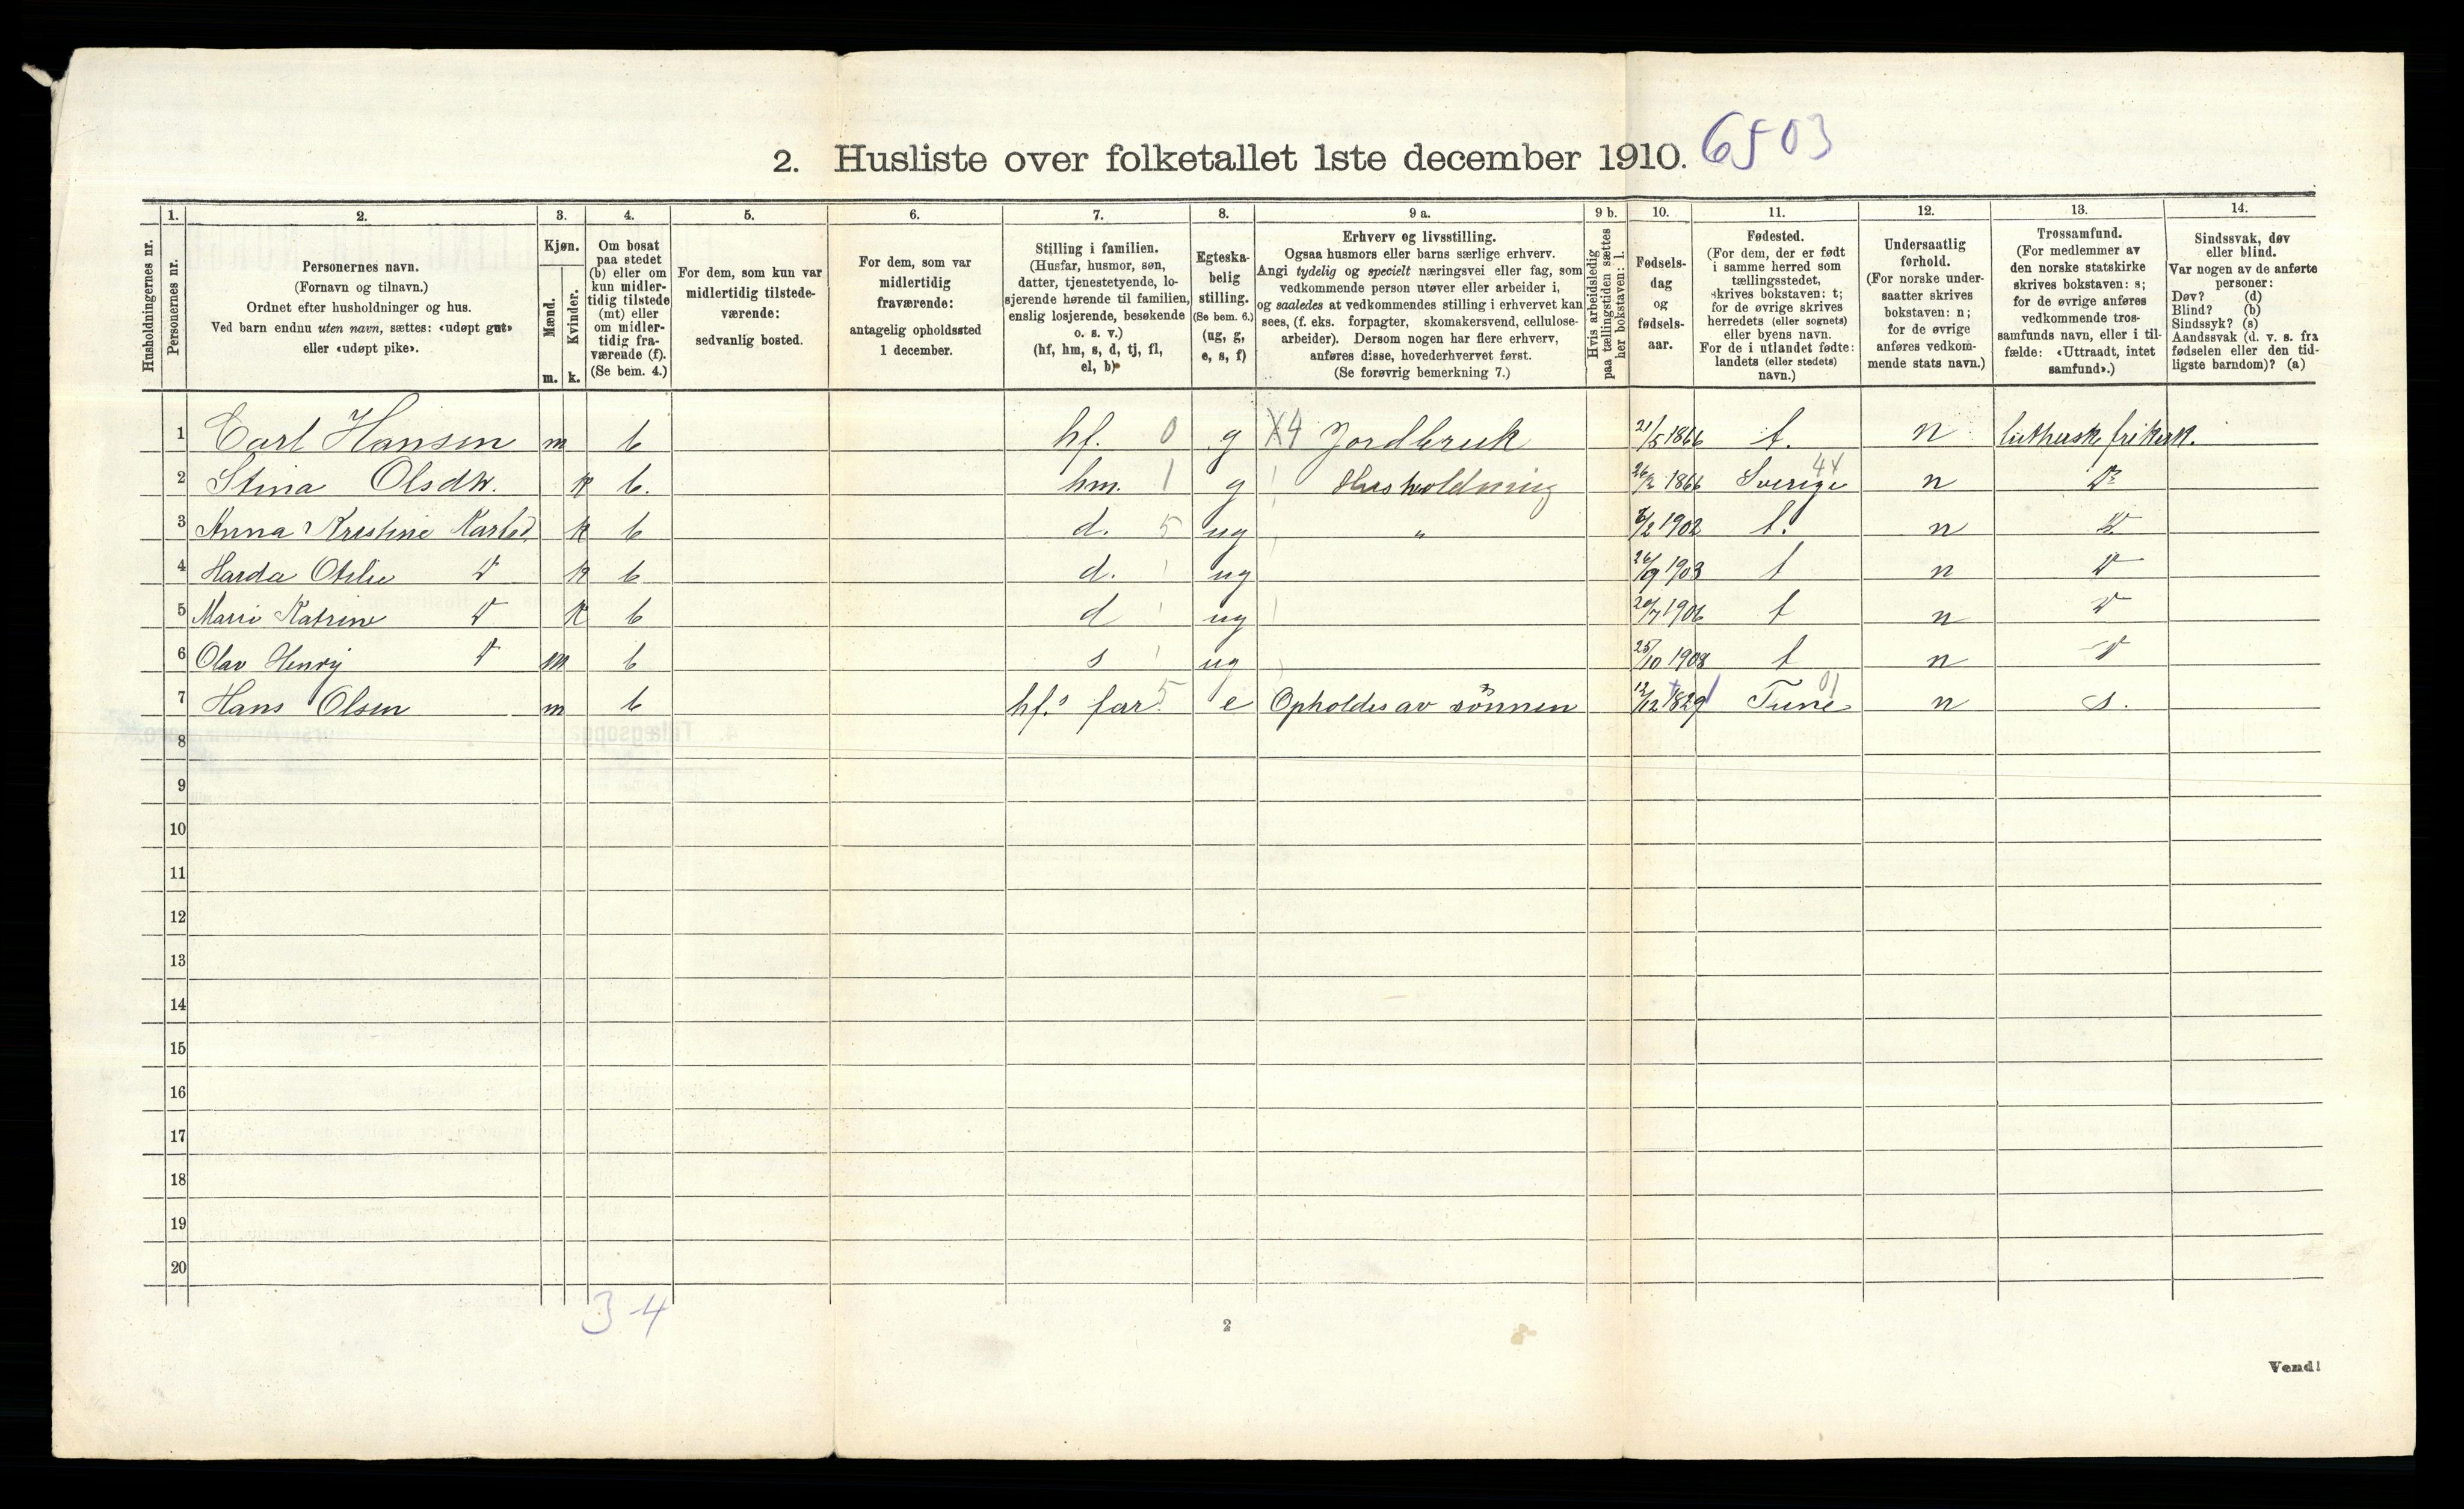 2. Husliste over folketallet 1ste december 1910. 6503
Husholdningernes nr.
1.
Personernes nr.
2.
Personernes navn.
(Fornavn og tilnavn.)
Ordnet efter husholdninger og hus.
Ved barn endnu uten navn, sættes: «udøpt gut»
eller «udøpt pike».
3.
Kjøn.
Mænd.
Kvinder.
m. k.
4.
Om bosat
paa stedet
(b) eller om
kun midler-
tidig tilstede
(mt) eller
om midler-
tidig fra-
værende (f).
(Se bem. 4.)
5.
For dem, som kun var
midlertidig tilstede-
værende:
sedvanlig bosted.
6.
For dem, som var
midlertidig
fraværende:
antagelig opholdssted
1 december.
7.
Stilling i familien.
(Husfar, husmor, søn,
datter, tjenestetyende, lo-
sjerende hørende til familien,
enslig losjerende, besøkende
o. s. v.)
(hf, hm, s, d, tj, fl,
el, b)
8.
Egteska-
belig
stilling.
(Se bem. 6.)
(ug, g,
e, s, f)
9 a.
Erhverv og livsstilling.
Ogsaa husmors eller barns særlige erhverv.
Angi tydelig og specielt næringsvei eller fag, som
vedkommende person utøver eller arbeider i,
og saaledes at vedkommendes stilling i erhvervet kan
sees, (f. eks. forpagter, skomakersvend, cellulose-
arbeider). Dersom nogen har flere erhverv,
anføres disse, hovederhvervet først.
(Se forøvrig bemerkning 7.)
9 b.
Hvis arbeidsledig
paa tællingstiden sættes
her bokstaven: l.
10.
Fødsels-
dag
og
fødsels-
aar.
11.
Fødested.
(For dem, der er født
i samme herred som
tællingsstedet,
skrives bokstaven: t;
for de øvrige skrives
herredets (eller sognets)
eller byens navn.
For de i utlandet fødte:
landets (eller stedets)
navn.)
12.
Undersaatlig
forhold.
(For norske under-
saatter skrives
bokstaven: n;
for de øvrige
anføres vedkom-
mende stats navn.)
13.
Trossamfund.
(For medlemmer av
den norske statskirke
skrives bokstaven: s;
for de øvrige anføres
vedkommende tros-
samfunds navn, eller i til-
fælde: «Uttraadt, intet
samfund».)
14.
Sindssvak, døv
eller blind.
Var nogen av de anførte
personer:
Døv? (d)
Blind? (b)
Sindssyk? (s)
Aandssvak (d. v. s. fra
fødselen eller den tid-
ligste barndom)? (a)
1 Carl Hansen m b hf. 0 g X4 Jordbruk 21/5 1866 t. n luthersk frikirk.
2 Stina Olsdtr. k b. hm. 1 g Husholdning 26/2 1866 Sverige 44 n D
3 Anna Kristine Karlsd. k b d. 5 ug " 6/2 1902 t. n D
4 Harda Otilie D k b d. ug 26/9 1903 t n D
5 Marie Katrine D k b d ug 20/7 1906 t n D
6 Olav Henry D m b s ug 25/10 1908 t n D
7 Hans Olsen m b hf.s far 5 e Opholdes av sønnen 12/12 1829 Tune 01 n s.
8
9
10
11
12
13
14
15
16
17
18
19
20
3-4
2
Vend!